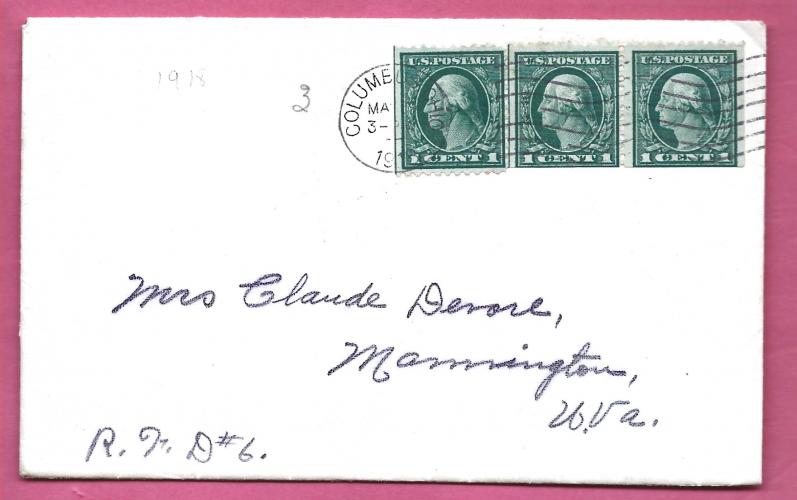 1918
3
COLUMBU
OHIO
MA
3-
191
U.S.POSTAGE
1 CENT 1
U.S.POSTAGE
1 CENT 1
U.S.POSTAGE
1 CENT 1
Mrs Claude Devore,
Mannington,
W.Va.
R.F.D#6.